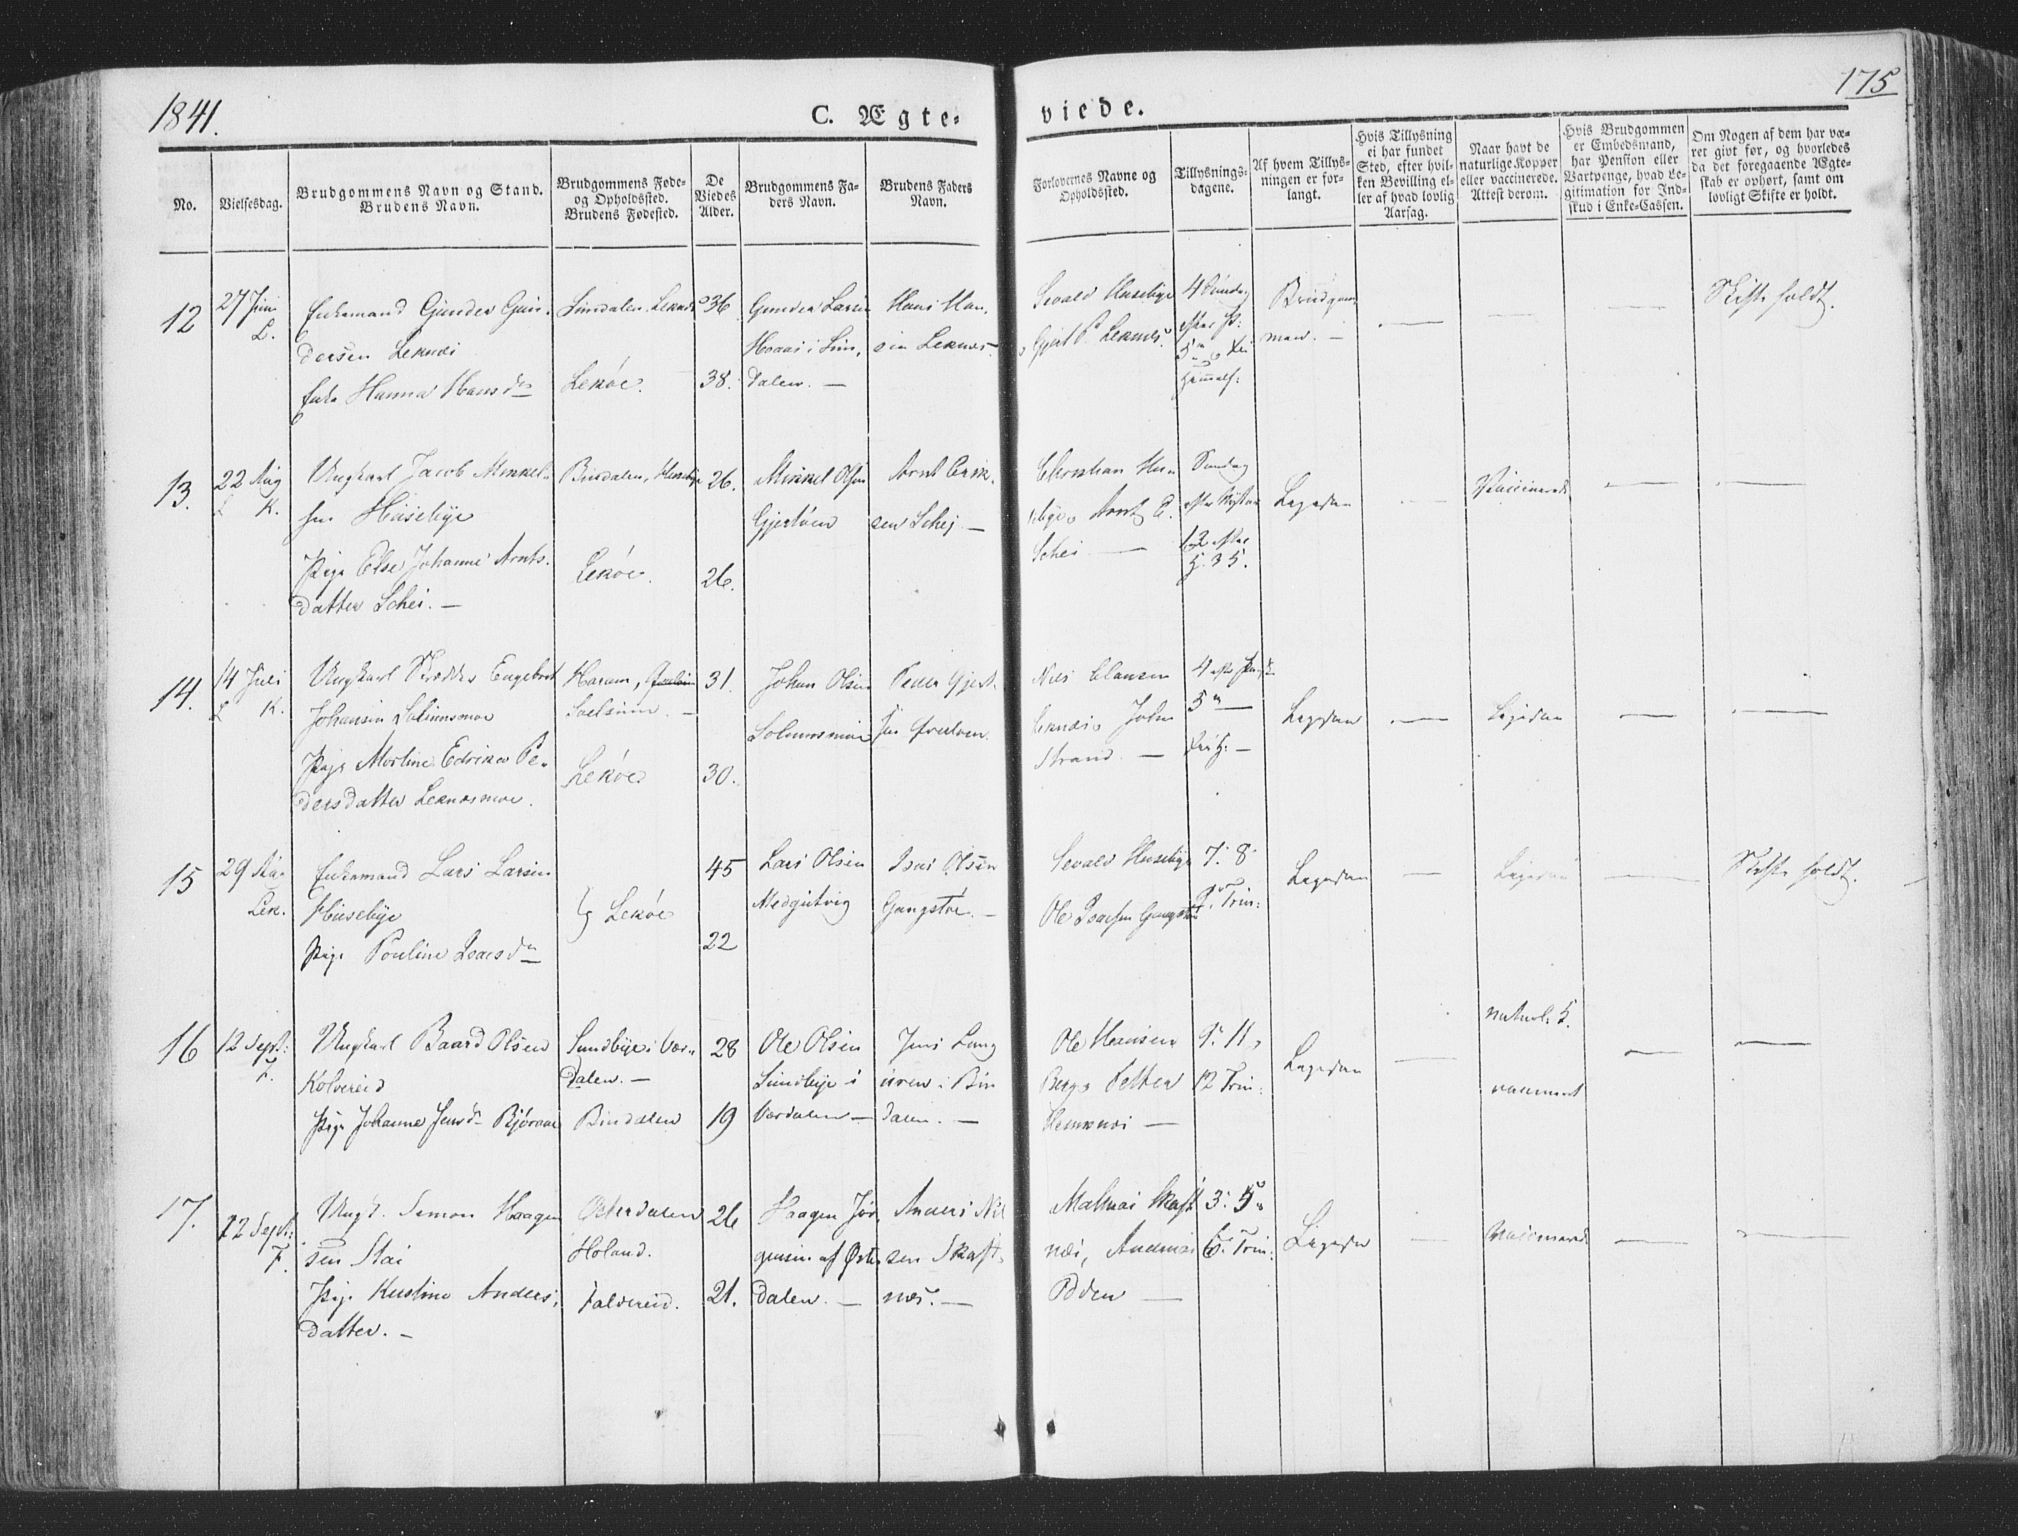 1841.
C. Ægte-
viede.
175
No.
Vielsesdag.
Brudgommens Navn og Stand.
Brudens Navn.
Brudgommens Føde-
og Opholdssted.
Brudens Fødested.
De
Viedes
Alder.
Brudgommens Fa-
ders Navn.
Brudens Faders
Navn.
Forlovernes Navne og
Opholdssted.
Tillysnings-
dagene.
Af hvem Tillys-
ningen er for-
langt.
Hvis Tillysning
ei har fundet
Sted, efter hvil-
ken Bevilling el-
ler af hvad lovlig
Aarsag.
Naar havt de
naturlige Kopper
eller vaccinerede.
Attest derom.
Hvis Brudgommen
er Embedsmand,
har Pension eller
Vartpenge, hvad Le-
gitimation for Ind-
skud i Enke-Cassen.
Om Nogen af dem har væ-
ret givt før, og hvorledes
da det foregaaende Ægte-
skab er ophørt, samt om
lovligt Skifte er holdt.
12
27 Juni
L.
Enkemand Gunder Gun-
dersen Leknæs
Enke Hanna Hansd
Lekøe.
36
38.
Gunder Larsen
dalen. —
Hans Han-
sen Leknæs.
Sevald Husebye
Gjert P. Leknæs.
4 Søndag
Brudgom-
men. —
Skifte holdt.
13.
22 Aug
L K.
Ungkarl Jacob Mikkel-
sen Husebye
Pige Else Johanna Arnts-
datter Schei. —
Bindalen, Husebye
Lekøe.
26.
26.
Mikkel Olsen
Arnt Erik-
sen Schej —
Christian Hu-
sebye, Arnt E.
Schei —
Søndag
Ligedan
Vaccinerede
14.
14 Juli
L K.
Ungkarl Skrædder Engebret
Johansen Solumsmoe
Pige Martine Edrikea Pe-
dersdatter Leknæsmoe.
Lekøe
31.
30.
Johan Olsen
Solumsmoe
Peder Gjert-
sen
Niels Clausen
Leknæs, John
Strand. —
Ligedan
Ligedan
15
29 Au-
Lek.
Enkemand Lars Larsen
Husebye
Pige Pouline Isacsd
Lekøe
45
22
Lars Olsen
Isac Olsen
Gangstøe. —
Sevald Husebye
Ole Isacsen Gangstøe
7. 8
9. Trin:
Ligedan
Ligedan
Skifte holdt.
16
12 Sept:
F.
Ungkarl Baard Olsen
Kolvereid
Pige Johanna Jensd Bjøraae
Sundbye i Vær-
dalen. —
Bindalen
28
19
Ole Olsen
Sundbye i
Værdalen —
Jens Lang
i Bin
dalen. —
Ole Hansen
Berg, Petter
—
9. 11,
12 Trin:
Ligedan
naturl: K.
vaccineret
17.
12 Sept:
F.
Ungk. Simon Haagen
sen Stai
Pige Kristine Anders-
datter. —
Østerdalen
Foldereid.
26
21.
Haagen Jør-
gensen af Øster-
dalen. —
Anders Nil
sen Skaft-
næs. —
Mathias Skaft
næs, Andreas
—
3. 5
6. Trin:
Ligedan
Vaccinerede